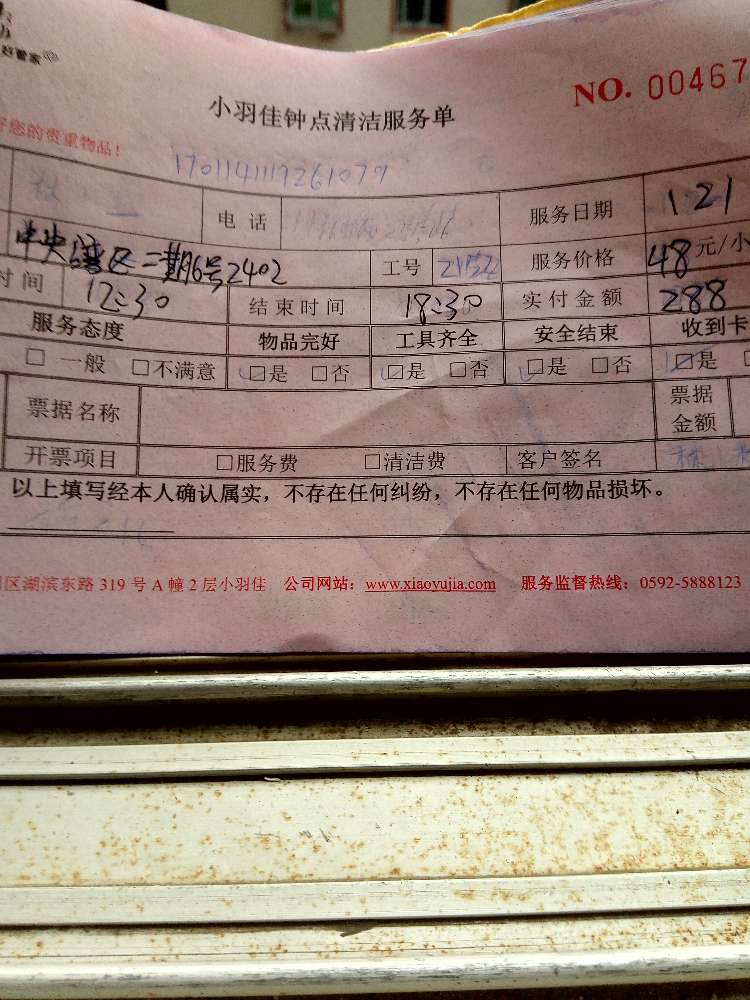 好管家
小羽佳钟点清洁服务单 NO. 00467
您的贵重物品!
1701141119261079
电话 服务日期 1.21
中央湾区二期6号2402 工号 服务价格 48元/小
时间 12:30 结束时间 18:30 实付金额 288
服务态度 物品完好 工具齐全 安全结束 收到卡
□一般 □不满意 □是 □否 □是 □否 □是 □否 □是
票据名称 票据金额
开票项目 □服务费 □清洁费 客户签名 林
以上填写经本人确认属实，不存在任何纠纷，不存在任何物品损坏。
区湖滨东路 319 号 A 幢 2 层小羽佳 公司网站：www.xiaoyujia.com 服务监督热线：0592-5888123